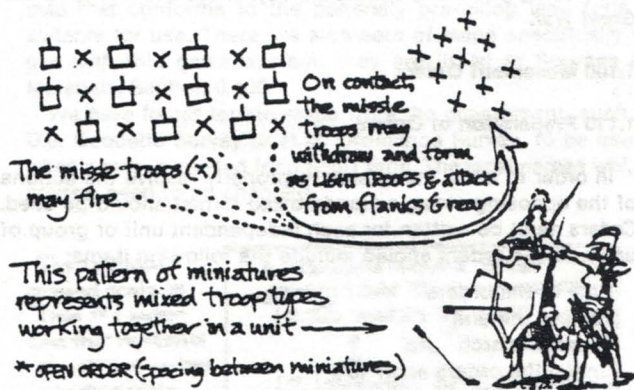 On contact,
the missle
troops may
withdraw and form
as LIGHT TROOPS & attack
from flanks & rear.
The missle troops (x)
may fire.
This pattern of miniatures
represents mixed troop types
working together in a unit
* OPEN ORDER (spacing between miniatures)